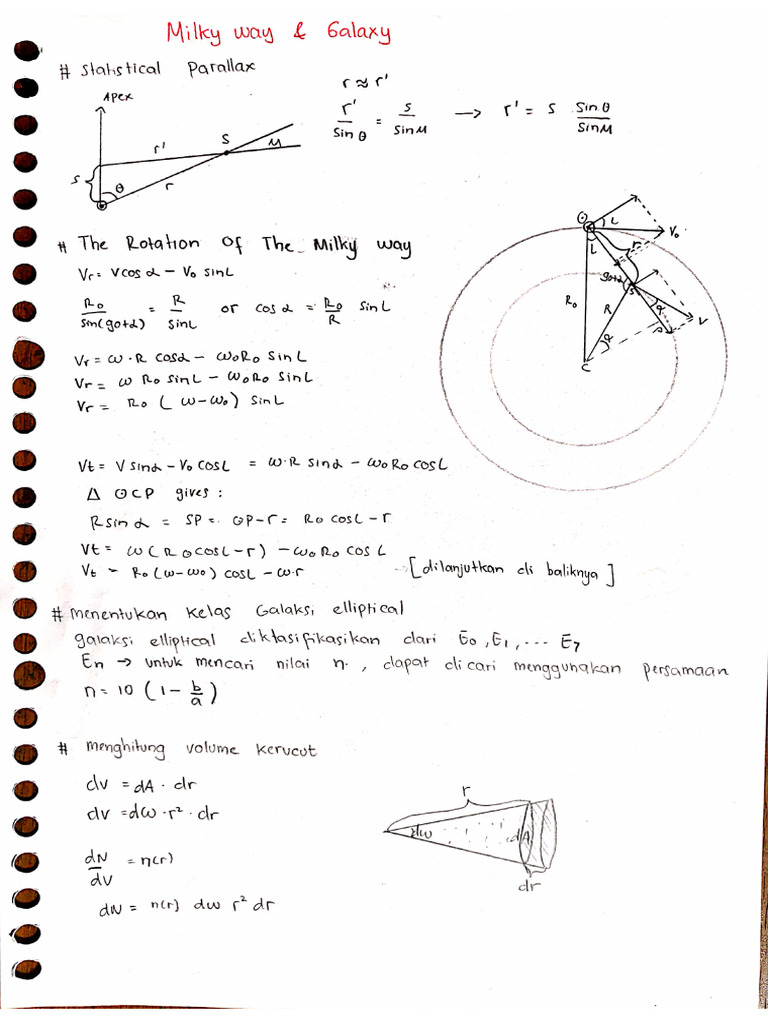 Milky way & Galaxy
# Statistical Parallax
Apex
r'
S
M
s
θ
r
r ≈ r'
r'/Sin θ = s/Sin M → r' = s Sin θ/Sin M
# The Rotation Of The Milky way
Vr = V cos α – V₀ sin L
R₀/sin(90+α) = R/sin L or cos α = R₀/R sin L
Vr = ω·R cos α – ω₀R₀ sin L
Vr = ω R₀ sin L – ω₀R₀ sin L
Vr = R₀ (ω–ω₀) sin L
⊙
L
V₀
L
r
90+α
S
R₀
R
α
V
α
P
C
Vt = V sin α – V₀ cos L = ω·R sin α – ω₀R₀ cos L
Δ ⊙CP gives :
R sin α = SP = ⊙P–r = R⊙ cos L – r
Vt = ω(R⊙ cos L – r) – ω₀R₀ cos L
Vt = R₀(ω–ω₀) cos L – ω·r [dilanjutkan di baliknya]
# menentukan Kelas Galaksi elliptical
galaksi elliptical diklasifikasikan dari E₀, E₁, ... E₇
En → untuk mencari nilai n. , dapat dicari menggunakan persamaan
n = 10 (1 – b/a)
# menghitung volume kerucut
dv = dA · dr
dv = dω · r² · dr
dN/dV = n(r)
dN = n(r) dω r² dr
r
dω
dA
dr